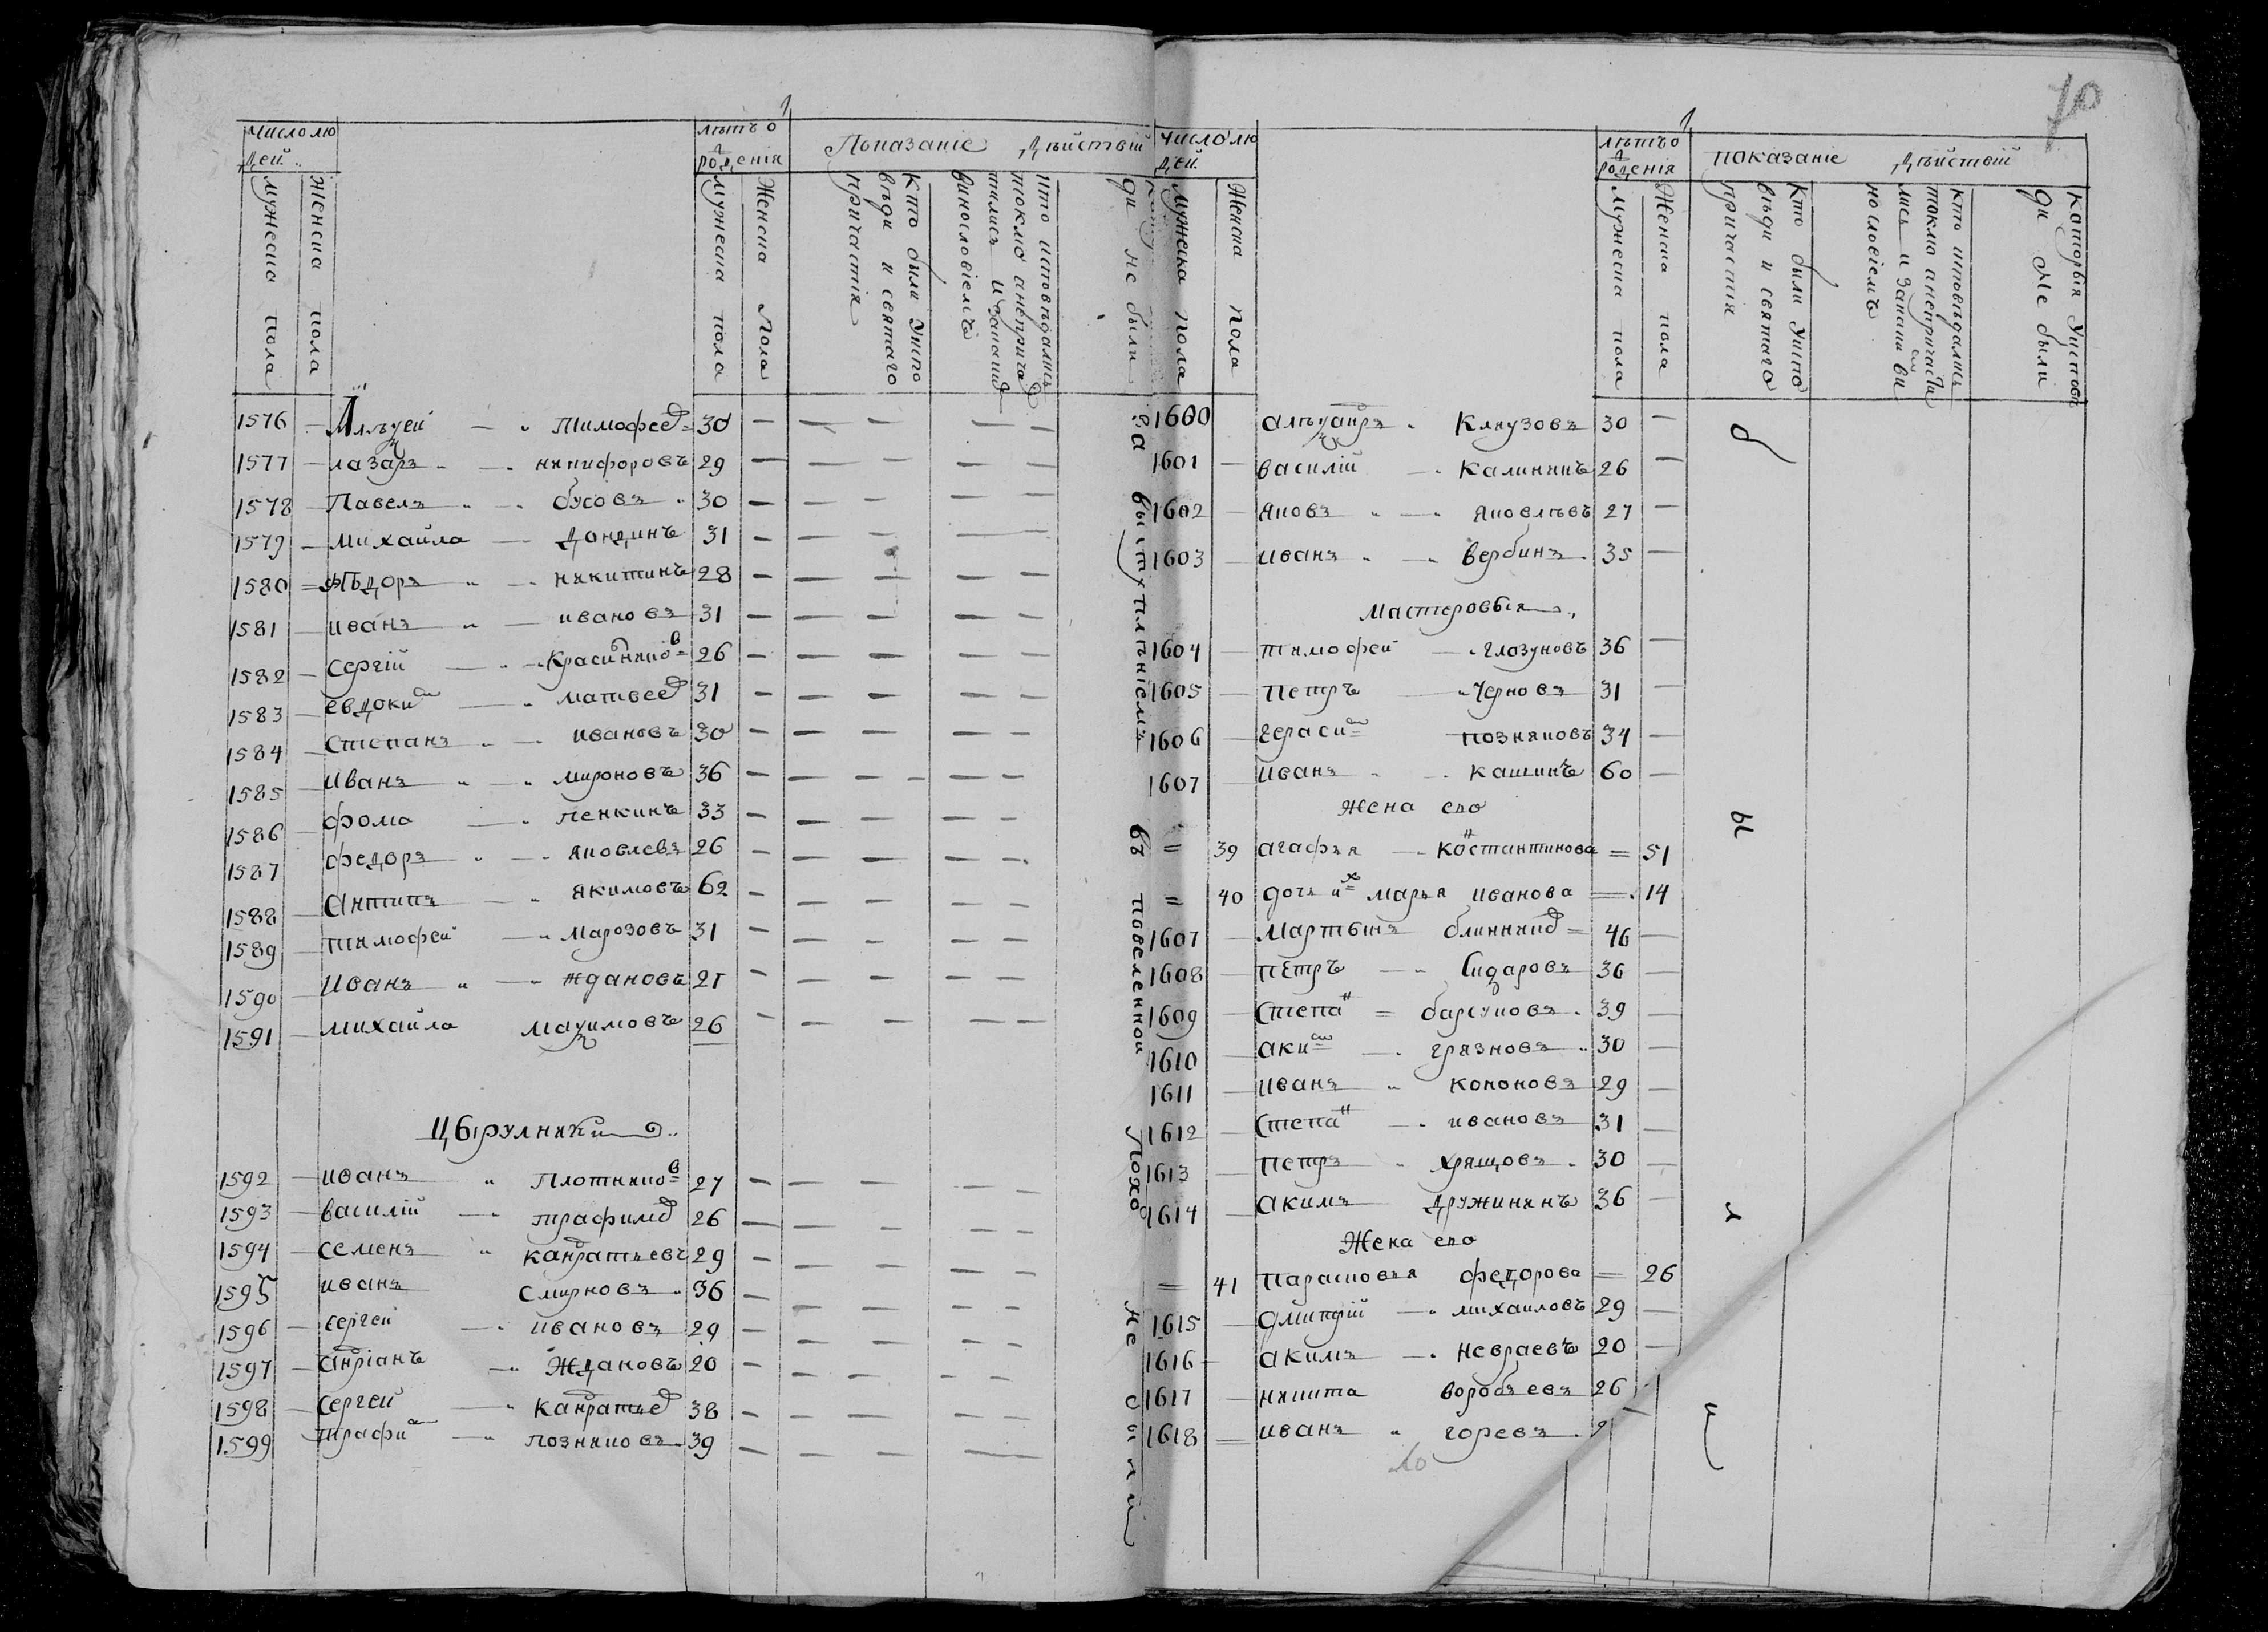 70
число людей
лѣтъ о рожденія
Показаніе дѣйствій
мужеска пола
женска пола
мужеска пола
женска пола
Кто были У исповѣди и святаго причастія
Кто исповѣдались токмо а непричастились и За каким винословіемъ
1576 — Алѣѯей — тимофеев 30 —
1577 — лазарь — никифоровъ 29 —
1578 — Павелъ — бусовъ 30 —
1579 — михайла — дондинъ 31 —
1580 = Ѳѣдоръ — никитинъ 28 —
1581 — иванъ — ивановъ 31 —
1582 — Сергій — Красилников 26 —
1583 — евдоким — матвеев 31 —
1584 — Степанъ — ивановъ 30 —
1585 — иванъ — мироновъ 36 —
1586 — фома — пенкинъ 33 —
1587 федоръ — яковлевъ 26 —
1588 — Антипъ — якимовъ 62 —
1589 — тимофей — марозовъ 31 —
1590 — иванъ — ждановъ 21 —
1591 — михайла маѯимовъ 26 —
Цырулники
1592 — иванъ Плотников 27 —
1593 — василій — трафимов 26 —
1594 — семенъ кандратьевъ 29 —
1595 иванъ Смирновъ 36 —
1596 — сергей — ивановъ 29 —
1597 — андріанъ — Ждановъ 20 —
1598 — Сергей — кандратьев 38 —
1599 трафим — позняковъ 39 —
ди не были
За выступлѣніемъ въ повеленной Поход не были
число людей
лѣтъ о рожденія
показаніе дѣйствій
мужеска пола
Женска пола
мужеска пола
Женска пола
Кто были У исповѣди и святаго причастія
кто исповѣдались токмо а непричастились и За каким винословіемъ
Которыя У исповѣди не были
1600 алѣѯандръ Клнузовъ 30 —
1601 — василій — Калининъ 26 —
1602 — яковъ — яковлѣвъ 27 —
1603 — иванъ — вербинъ 35 —
мастеровыя
1604 — тимофей — глазуновъ 36 —
1605 — петръ — черновъ 31 —
1606 — герасим позняковъ 34 —
1607 — иванъ — кашинъ 60 —
жена ево
= 39 агафья — костантинова = 51
= 40 дочь их марья иванова — 14
1607 — мартынъ блинников = 46 —
1608 — пѣтръ — Сидаровъ 36 —
1609 — Степан = барсуковъ 39 —
1610 — аким — грязновъ 30 —
1611 — иванъ кононовъ 29 —
1612 — Степан — ивановъ 31 —
1613 — петръ хрящовъ 30 —
1614 — акимъ дружининъ 36 —
Жена ево
= 41 парасковья федорова = 26
1615 — дмитрій — михаиловъ 29 —
1616 — акимъ — невраевъ 20 —
1617 — никита воробьевъ 26
1618 = иванъ горевъ
были